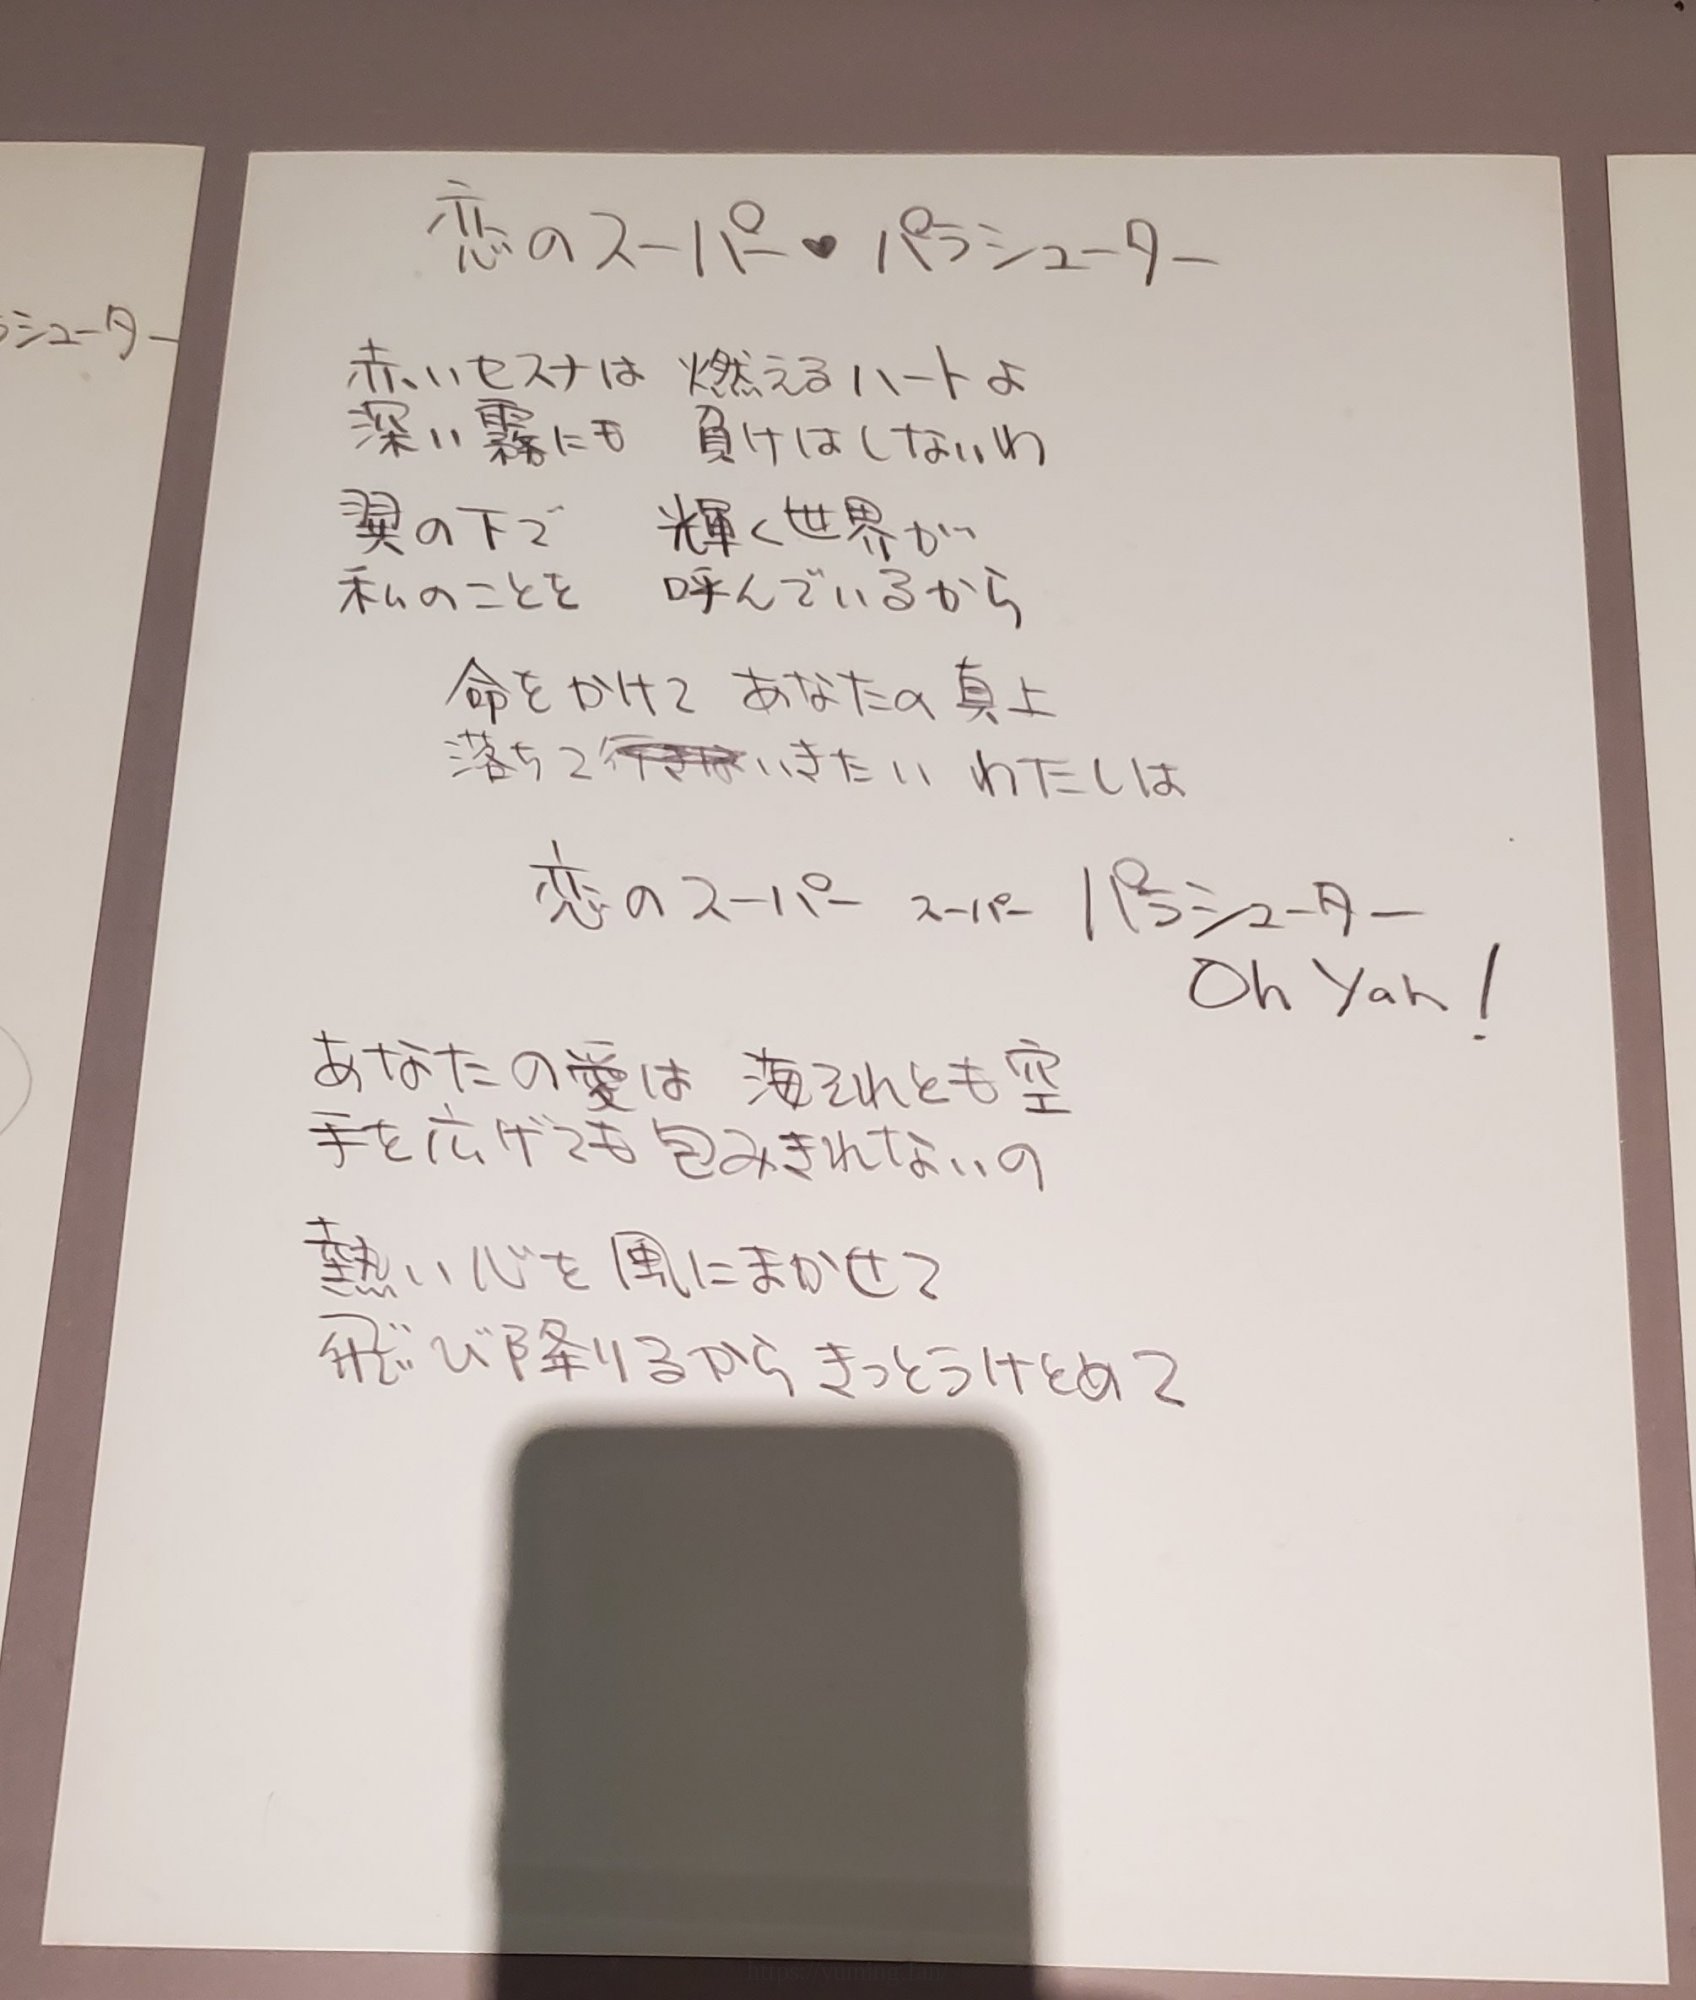 恋のスーパー♥パラシューター
赤いセスナは 燃えるハートよ
深い霧にも 負けはしないわ
翼の下で 輝く世界が
私のことを 呼んでいるから
命をかけて あなたの真上
落ちていきたい わたしは
恋のスーパー スーパー パラシューター
Oh Yah!
あなたの愛は 海それとも空
手を広げても包みきれないの
熱い心を風にまかせて
飛び降りるから きっとうけとめて
シューター